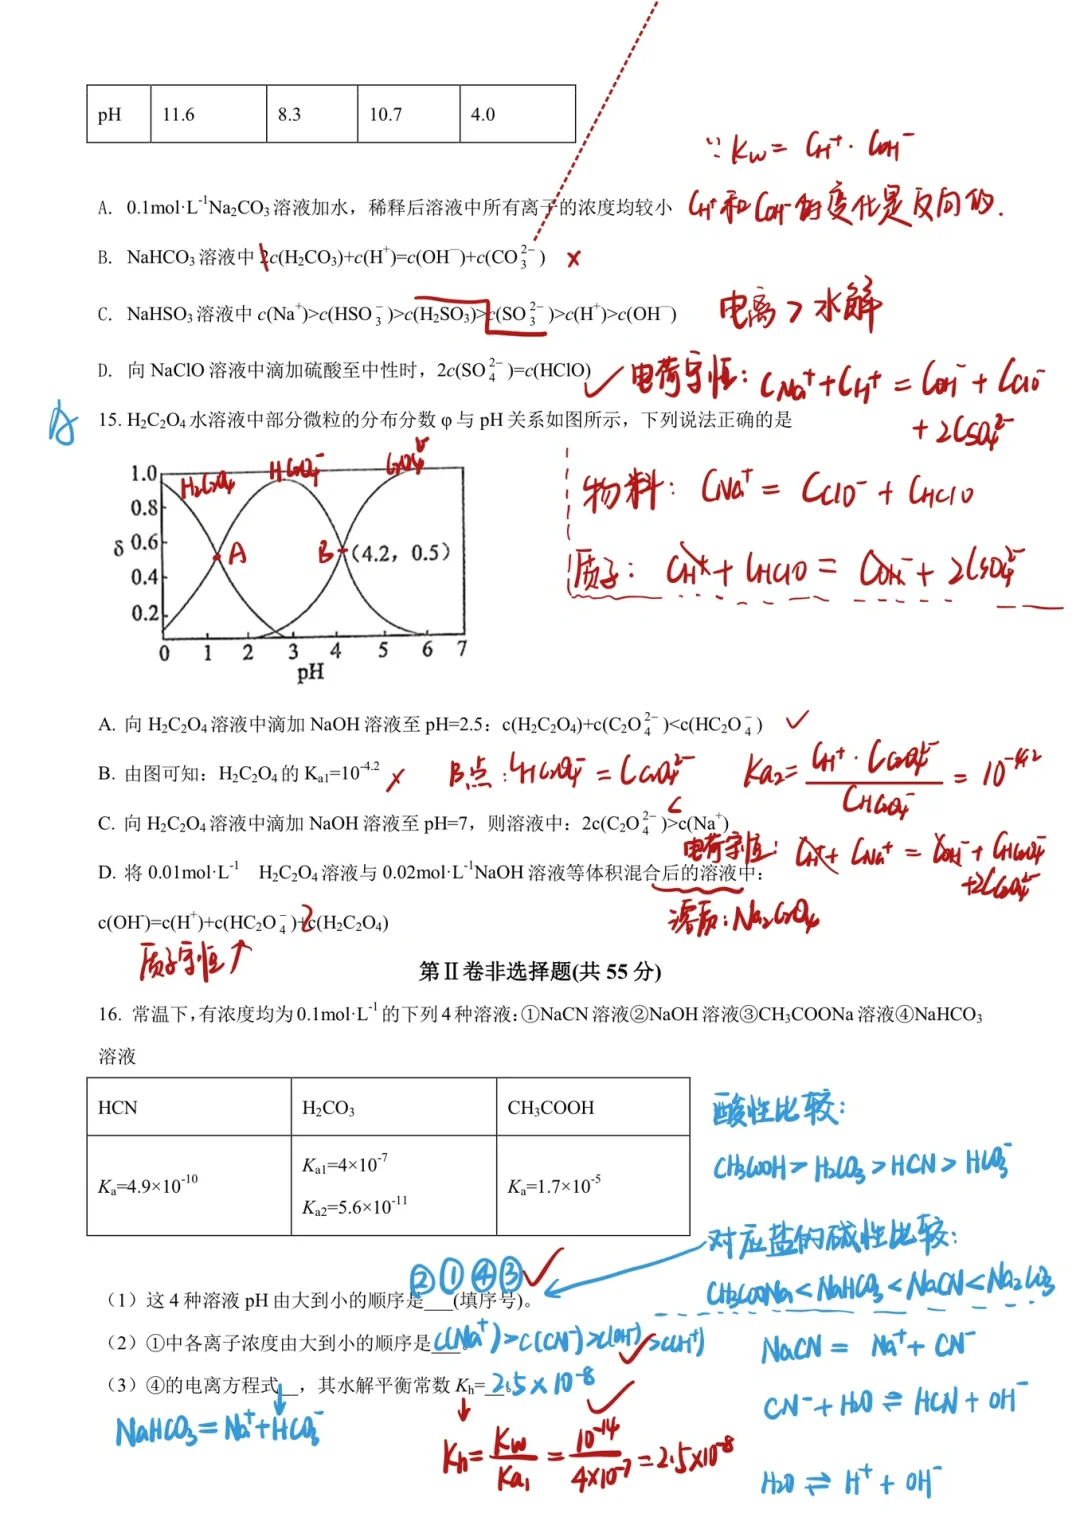 pH 11.6 8.3 10.7 4.0
∵ Kw = CH⁺ · COH⁻
A. 0.1mol·L⁻¹Na₂CO₃溶液加水，稀释后溶液中所有离子的浓度均较小 CH⁺和COH⁻的变化是反向的.
B. NaHCO₃溶液中 2c(H₂CO₃)+c(H⁺)=c(OH⁻)+c(CO₃²⁻) ×
C. NaHSO₃溶液中 c(Na⁺)>c(HSO₃⁻)>c(H₂SO₃)>c(SO₃²⁻)>c(H⁺)>c(OH⁻) 电离 > 水解
D. 向 NaClO 溶液中滴加硫酸至中性时，2c(SO₄²⁻)=c(HClO) ✓ 电荷守恒: CNa⁺+CH⁺ = COH⁻ + CClO⁻
+ 2CSO₄²⁻
15. H₂C₂O₄水溶液中部分微粒的分布分数 φ 与 pH 关系如图所示，下列说法正确的是
物料: CNa⁺ = CClO⁻ + CHClO
质子: CH⁺ + CHClO = COH⁻ + 2CSO₄²⁻
H₂C₂O₄ HC₂O₄⁻ C₂O₄²⁻
1.0
0.8
δ 0.6 A B (4.2，0.5)
0.4
0.2
0 1 2 3 4 5 6 7
pH
A. 向 H₂C₂O₄溶液中滴加 NaOH 溶液至 pH=2.5：c(H₂C₂O₄)+c(C₂O₄²⁻)<c(HC₂O₄⁻) ✓
B. 由图可知：H₂C₂O₄的 Ka1=10⁻⁴·² × B点: CHC₂O₄⁻ = CC₂O₄²⁻ Ka₂= CH⁺ · CC₂O₄²⁻ / CHC₂O₄⁻ = 10⁻⁴·²
<
C. 向 H₂C₂O₄溶液中滴加 NaOH 溶液至 pH=7，则溶液中：2c(C₂O₄²⁻)>c(Na⁺)
电荷守恒: CH⁺ + CNa⁺ = COH⁻ + CHC₂O₄⁻
+2CC₂O₄²⁻
D. 将 0.01mol·L⁻¹ H₂C₂O₄溶液与 0.02mol·L⁻¹NaOH 溶液等体积混合后的溶液中：
溶质: Na₂C₂O₄
c(OH⁻)=c(H⁺)+c(HC₂O₄⁻)+2c(H₂C₂O₄)
质子守恒↑
第Ⅱ卷非选择题(共 55 分)
16. 常温下，有浓度均为 0.1mol·L⁻¹的下列 4 种溶液：①NaCN 溶液②NaOH 溶液③CH₃COONa 溶液④NaHCO₃
溶液
HCN H₂CO₃ CH₃COOH
Ka=4.9×10⁻¹⁰ Ka1=4×10⁻⁷ Ka2=5.6×10⁻¹¹ Ka=1.7×10⁻⁵
酸性比较:
CH₃COOH > H₂CO₃ > HCN > HCO₃⁻
对应盐的碱性比较:
CH₃COONa < NaHCO₃ < NaCN < Na₂CO₃
②①④③ ✓
（1）这 4 种溶液 pH 由大到小的顺序是___(填序号)。
（2）①中各离子浓度由大到小的顺序是___。 c(Na⁺)>c(CN⁻)>c(OH⁻)>c(H⁺) ✓
NaCN = Na⁺ + CN⁻
（3）④的电离方程式__，其水解平衡常数 Kh=__。 2.5×10⁻⁸ ✓
CN⁻ + H₂O ⇌ HCN + OH⁻
NaHCO₃ = Na⁺ + HCO₃⁻
Kh = Kw / Ka₁ = 10⁻¹⁴ / 4×10⁻⁷ = 2.5×10⁻⁸
H₂O ⇌ H⁺ + OH⁻